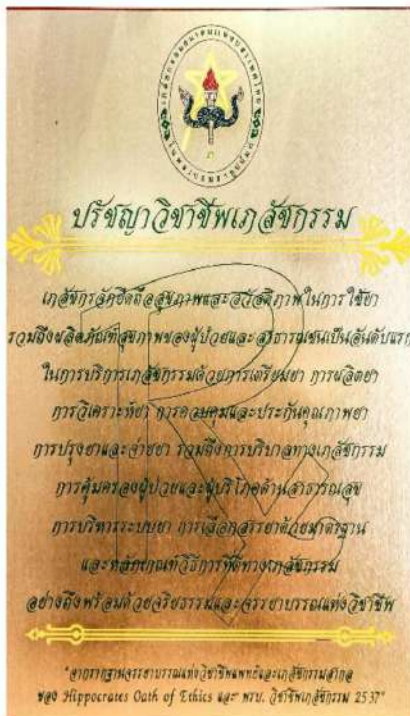 เภสัชกรรมสมาคมแห่งประเทศไทย
ในพระบรมราชูปถัมภ์
ปรัชญาวิชาชีพเภสัชกรรม
เภสัชกรจักยึดถือสุขภาพและสวัสดิภาพในการใช้ยา
รวมถึงผลิตภัณฑ์สุขภาพของผู้ป่วยและสาธารณชนเป็นอันดับแรก
ในการบริการเภสัชกรรมด้วยการเตรียมยา การผลิตยา
การวิเคราะห์ยา การควบคุมและประกันคุณภาพยา
การปรุงยาและจ่ายยา รวมถึงการบริบาลทางเภสัชกรรม
การคุ้มครองผู้ป่วยและผู้บริโภคด้านสาธารณสุข
การบริหารระบบยา การเลือกสรรยาด้วยมาตรฐาน
และหลักเกณฑ์วิธีการที่ดีทางเภสัชกรรม
อย่างถึงพร้อมด้วยจริยธรรมและจรรยาบรรณแห่งวิชาชีพ
"จากรากฐานจรรยาบรรณแห่งวิชาชีพแพทย์และเภสัชกรรมสากล
ของ Hippocrates Oath of Ethics และ พรบ. วิชาชีพเภสัชกรรม 2537"